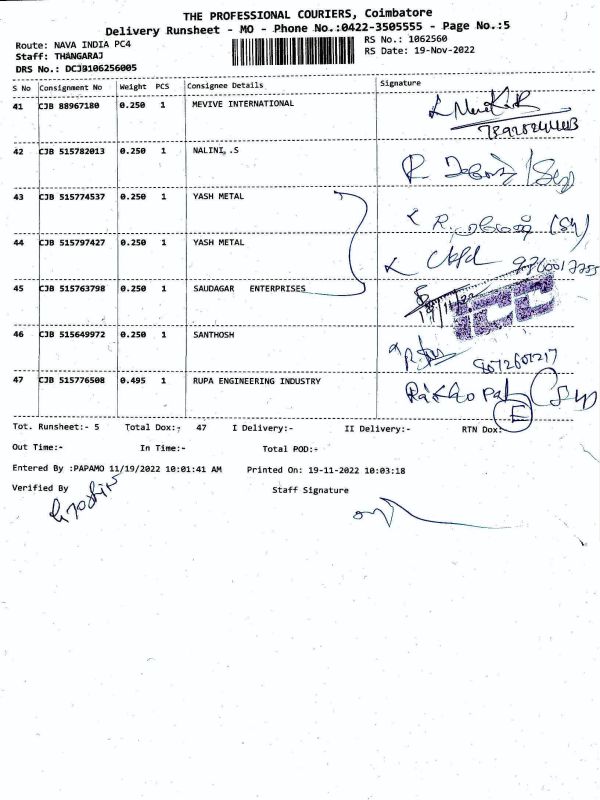 THE PROFESSIONAL COURIERS, Coimbatore
Delivery Runsheet - MO - Phone No.:0422-3505555 - Page No.:5
Route: NAVA INDIA PC4
RS No.: 1062560
Staff: THANGARAJ
RS Date: 19-Nov-2022
DRS No.: DCJB106256005
S No Consignment No Weight PCS Consignee Details Signature
41 CJB 88967180 0.250 1 MEVIVE INTERNATIONAL
42 CJB 515782013 0.250 1 NALINI, .S
43 CJB 515774537 0.250 1 YASH METAL
44 CJB 515797427 0.250 1 YASH METAL
45 CJB 515763798 0.250 1 SAUDAGAR ENTERPRISES
ICC
46 CJB 515649972 0.250 1 SANTHOSH
47 CJB 515776508 0.495 1 RUPA ENGINEERING INDUSTRY
E
Tot. Runsheet:- 5 Total Dox:- 47 I Delivery:- II Delivery:- RTN Dox:
Out Time:- In Time:- Total POD:-
Entered By :PAPAMO 11/19/2022 10:01:41 AM Printed On: 19-11-2022 10:03:18
Verified By Staff Signature